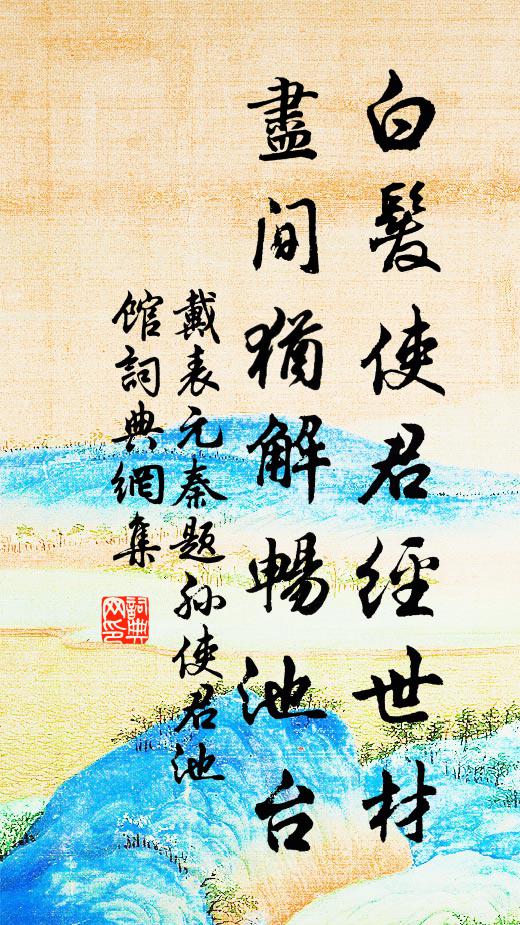 白髮使君經世材
盡間猶解暢池台
戴表元秦題孙使君池
館詞典網集
詞典
网印